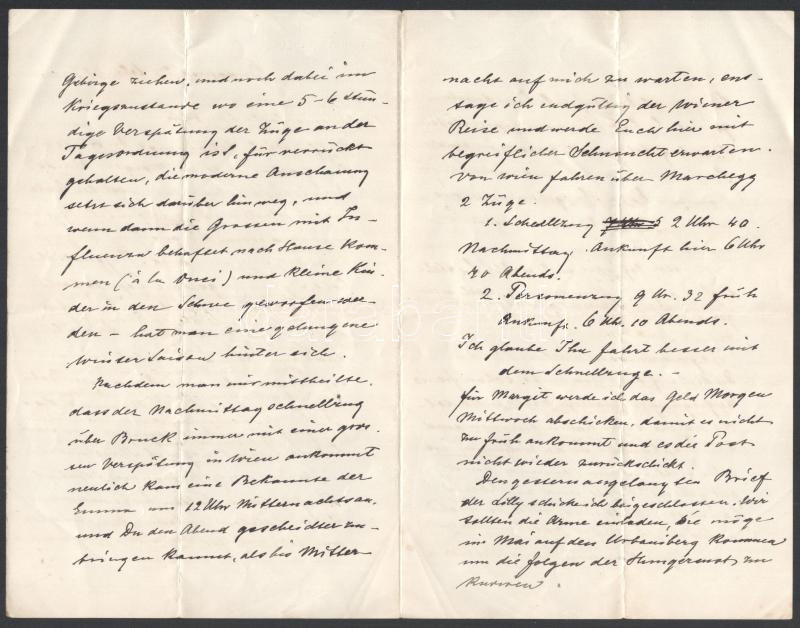 Gebirge ziehen, und noch dabei im
Kriegszustande wo eine 5-6 stün-
dige Verspätung der Züge an der
Tagesordnung ist, für verrückt
gehalten, die moderne Anschauung
setzt sich darüber hinweg, und
wenn dann die Grossen mit In-
fluenza behaftet nach Hause kom-
men (à la) und kleine Kin-
der in den Schnee geworfen wer-
den - hat man eine gelungene
Winter Saison hinter sich.
Nachdem man mir mittheilte,
dass der Nachmittagschnellzug
über Bruck immer mit einer gros-
sen Verspätung in Wien ankommt
neulich kam eine Bekannte der
Emma um 12 Uhr Mitternachts an.
und Du den Abend gescheidter zu-
bringen kannst, als bis Mitter-
nacht auf mich zu warten, ent-
sage ich endgültig der Wiener
Reise und werde Euch hier mit
begreiflicher Sehnsucht erwarten.
Von Wien fahren über Marchegg
2 Züge.
1. Schnellzug 2 Uhr 40.
Nachmittag. Ankunft hier 6 Uhr
40 Abends.
2. Personenzug 9 Ur. 32 früh
Ankunft. 6 Uh. 10 Abends.
Ich glaube Ihr fahrt besser mit
dem Schnellzuge. -
für Margit werde ich das Geld Morgen
Mittwoch abschicken, damit es nicht
zu früh ankommt und es die Post
nicht wieder zurückschickt.
Den gestern angelangten Brief
der Lilly schicke ich beigeschlossen. Wir
sollten die Arme einladen, Sie möge
im Mai auf den Urbaniberg kommen
um die folgen der Hungersnot zu
kuriren.